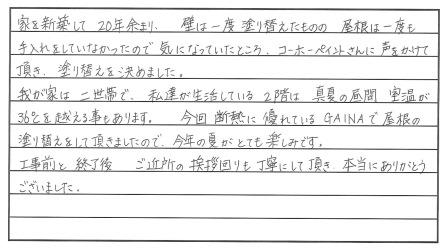 家を新築して 20年余まり、 壁は一度塗り替えたものの 屋根は一度も
手入れをしていなかったので 気になっていたところ、コーホーペイントさんに声をかけて
頂き、塗り替えを決めました。
我が家は 二世帯で、私達が生活している 2階は 真夏の昼間 室温が
36℃を越える事もあります。 今回 断熱に優れている GAINAで屋根の
塗り替えをして頂きましたので、今年の夏が とても楽しみです。
工事前と 終了後 ご近所の挨拶回りも丁寧にして頂き 本当にありがとう
ございました。